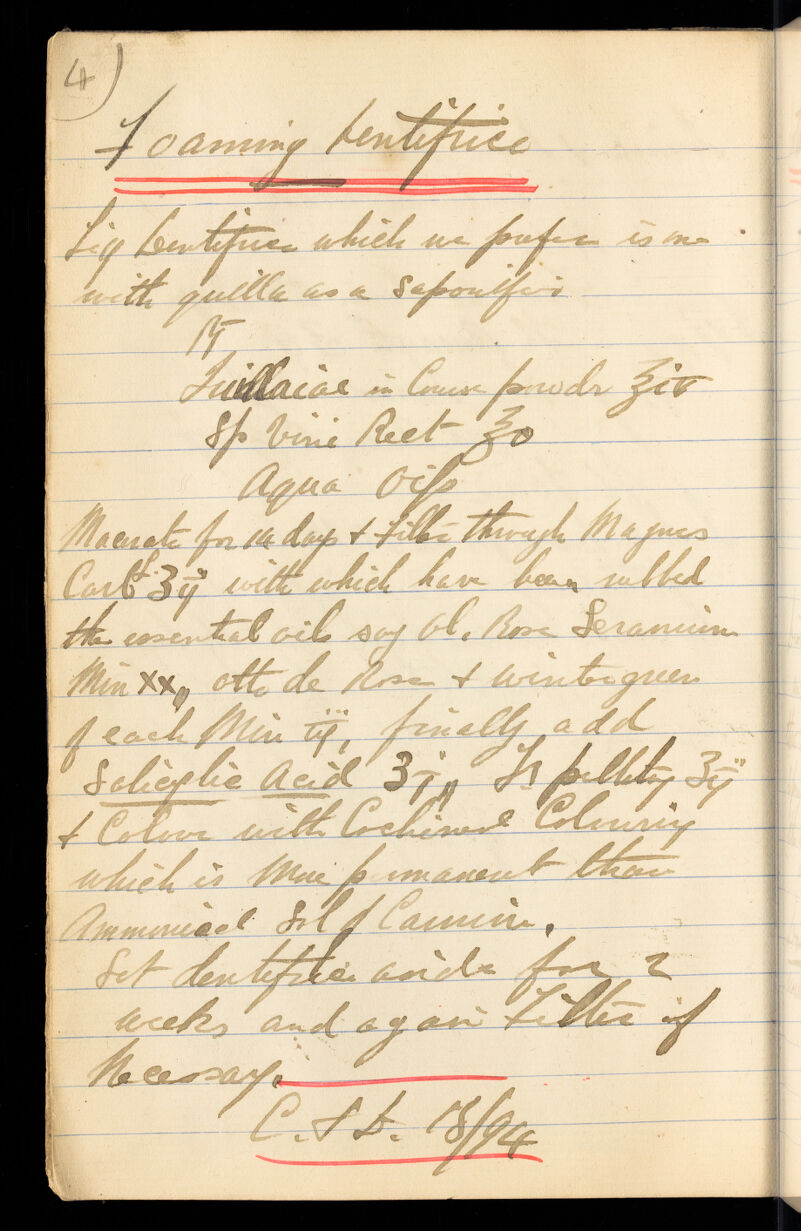 4)
Foaming Dentifrice
Liq Dentifrice which we prefer is one
with quilla as a saponifier
℞
Quillaiae in Coarse powdr ℥iv
Sp Vini Rect ℥
Aqua Oifs
Macerate for 14 days & Filter through Magnes
Carb ʒij with which have been rubbed
the essential oils say Ol. Rose Geranium
Min xx,, otto de Rose & wintergreen
of each Min iij, finally add
Salicylic Acid ʒj,, Tr pellitory ʒij
& Colour with Cochineal Colouring
which is More permanent than
Ammonical Sol of Carmine.
Set dentifrice aside for 2
weeks and again Filter if
Necessary.
C. & D. 18/94